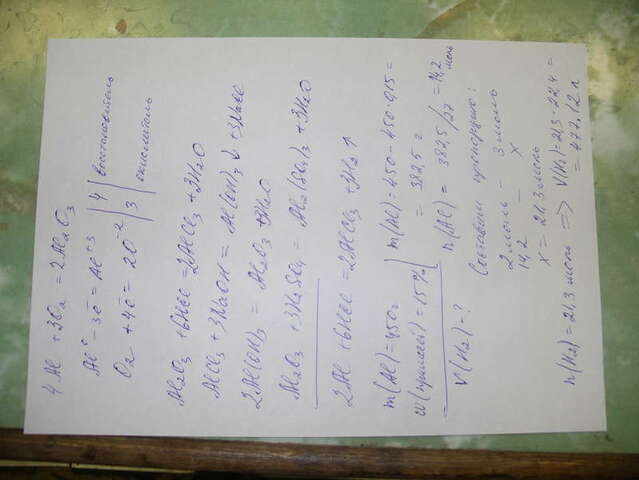 4Al + 3O₂ = 2Al₂O₃
Al⁰ - 3ē = Al⁺³ | 4 | восстановитель
O₂ + 4ē = 2O⁻² | 3 | окислитель
Al₂O₃ + 6HCl = 2AlCl₃ + 3H₂O
AlCl₃ + 3NaOH = Al(OH)₃ ↓ + 3NaCl
2Al(OH)₃ = Al₂O₃ + 3H₂O
Al₂O₃ + 3H₂SO₄ = Al₂(SO₄)₃ + 3H₂O
2Al + 6HCl = 2AlCl₃ + 3H₂ ↑
m(Al) = 450 г
w(примесей) = 15%
V(H₂) - ?
m(Al) = 450 - 450·0,15 =
= 382,5 г
n(Al) = 382,5/27 = 14,2 моль
Составим пропорцию:
2 моль - 3 моль
14,2 - x
x = 21,3 моль
n(H₂) = 21,3 моль => V(H₂) = 21,3·22,4 =
= 477,12 л